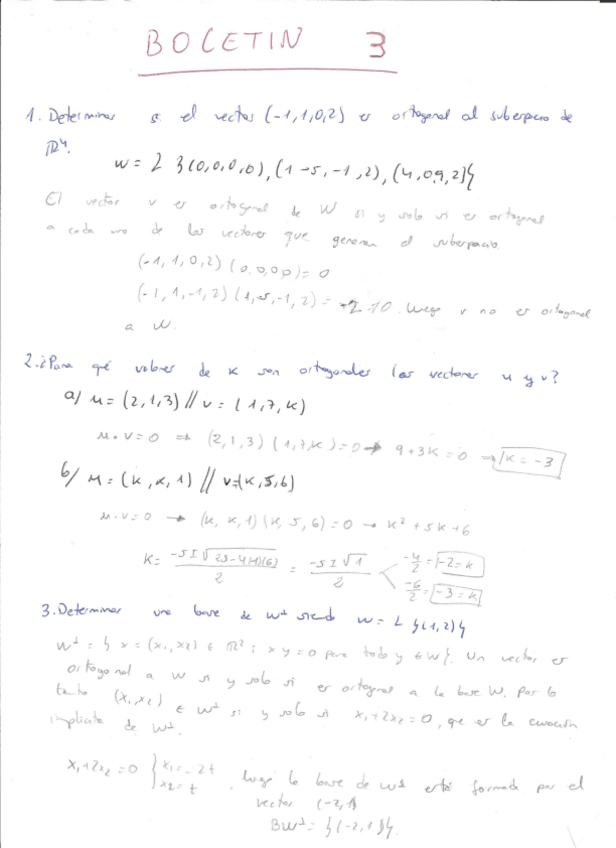 BOCETIN 3
1. Determinar si el vector (-1,1,0,2) es ortogonal al subespacio de
R⁴.
W = L {(0,0,0,0), (1-5,-1,2), (4,0,9,2)}
El vector v es ortogonal de W si y solo si es ortogonal
a cada uno de los vectores que generan el subespacio
(-1,1,0,2) (0,0,0,0) = 0
(-1,1,-1,2) (1,-5,-1,2) = luego v no es ortogonal
a W.
2. ¿Para qué valores de K son ortogonales los vectores u y v?
a/ u = (2,1,3) // v = (1,7,K)
u·v=0 ⇒ (2,1,3) (1,7,K)=0 → 9+3K=0 → K=-3
b/ u = (K,K,1) // v=(K,5,6)
u·v=0 → (K,K,1)(K,5,6)=0 → K²+5K+6
K = (-5±√(25-4(1)(6)))/2 = (-5±√1)/2 -4/2=-2=K
-6/2=-3=K
3. Determinar una base de W⊥ siendo W = L {(1,2)}
W⊥ = { x = (x₁,x₂) ∈ R²: x y=0 para todo y ∈ W}. Un vector es
ortogonal a W si y solo si es ortogonal a la base W. Por lo
tanto (x₁,x₂) ∈ W⊥ si y solo si x₁+2x₂=0, que es la ecuación
implicita de W⊥.
x₁+2x₂=0 { x₁=-2t
x₂=t . luego la base de W⊥ está formada por el
vector (-2,1)
BW⊥= {(-2,1)}.